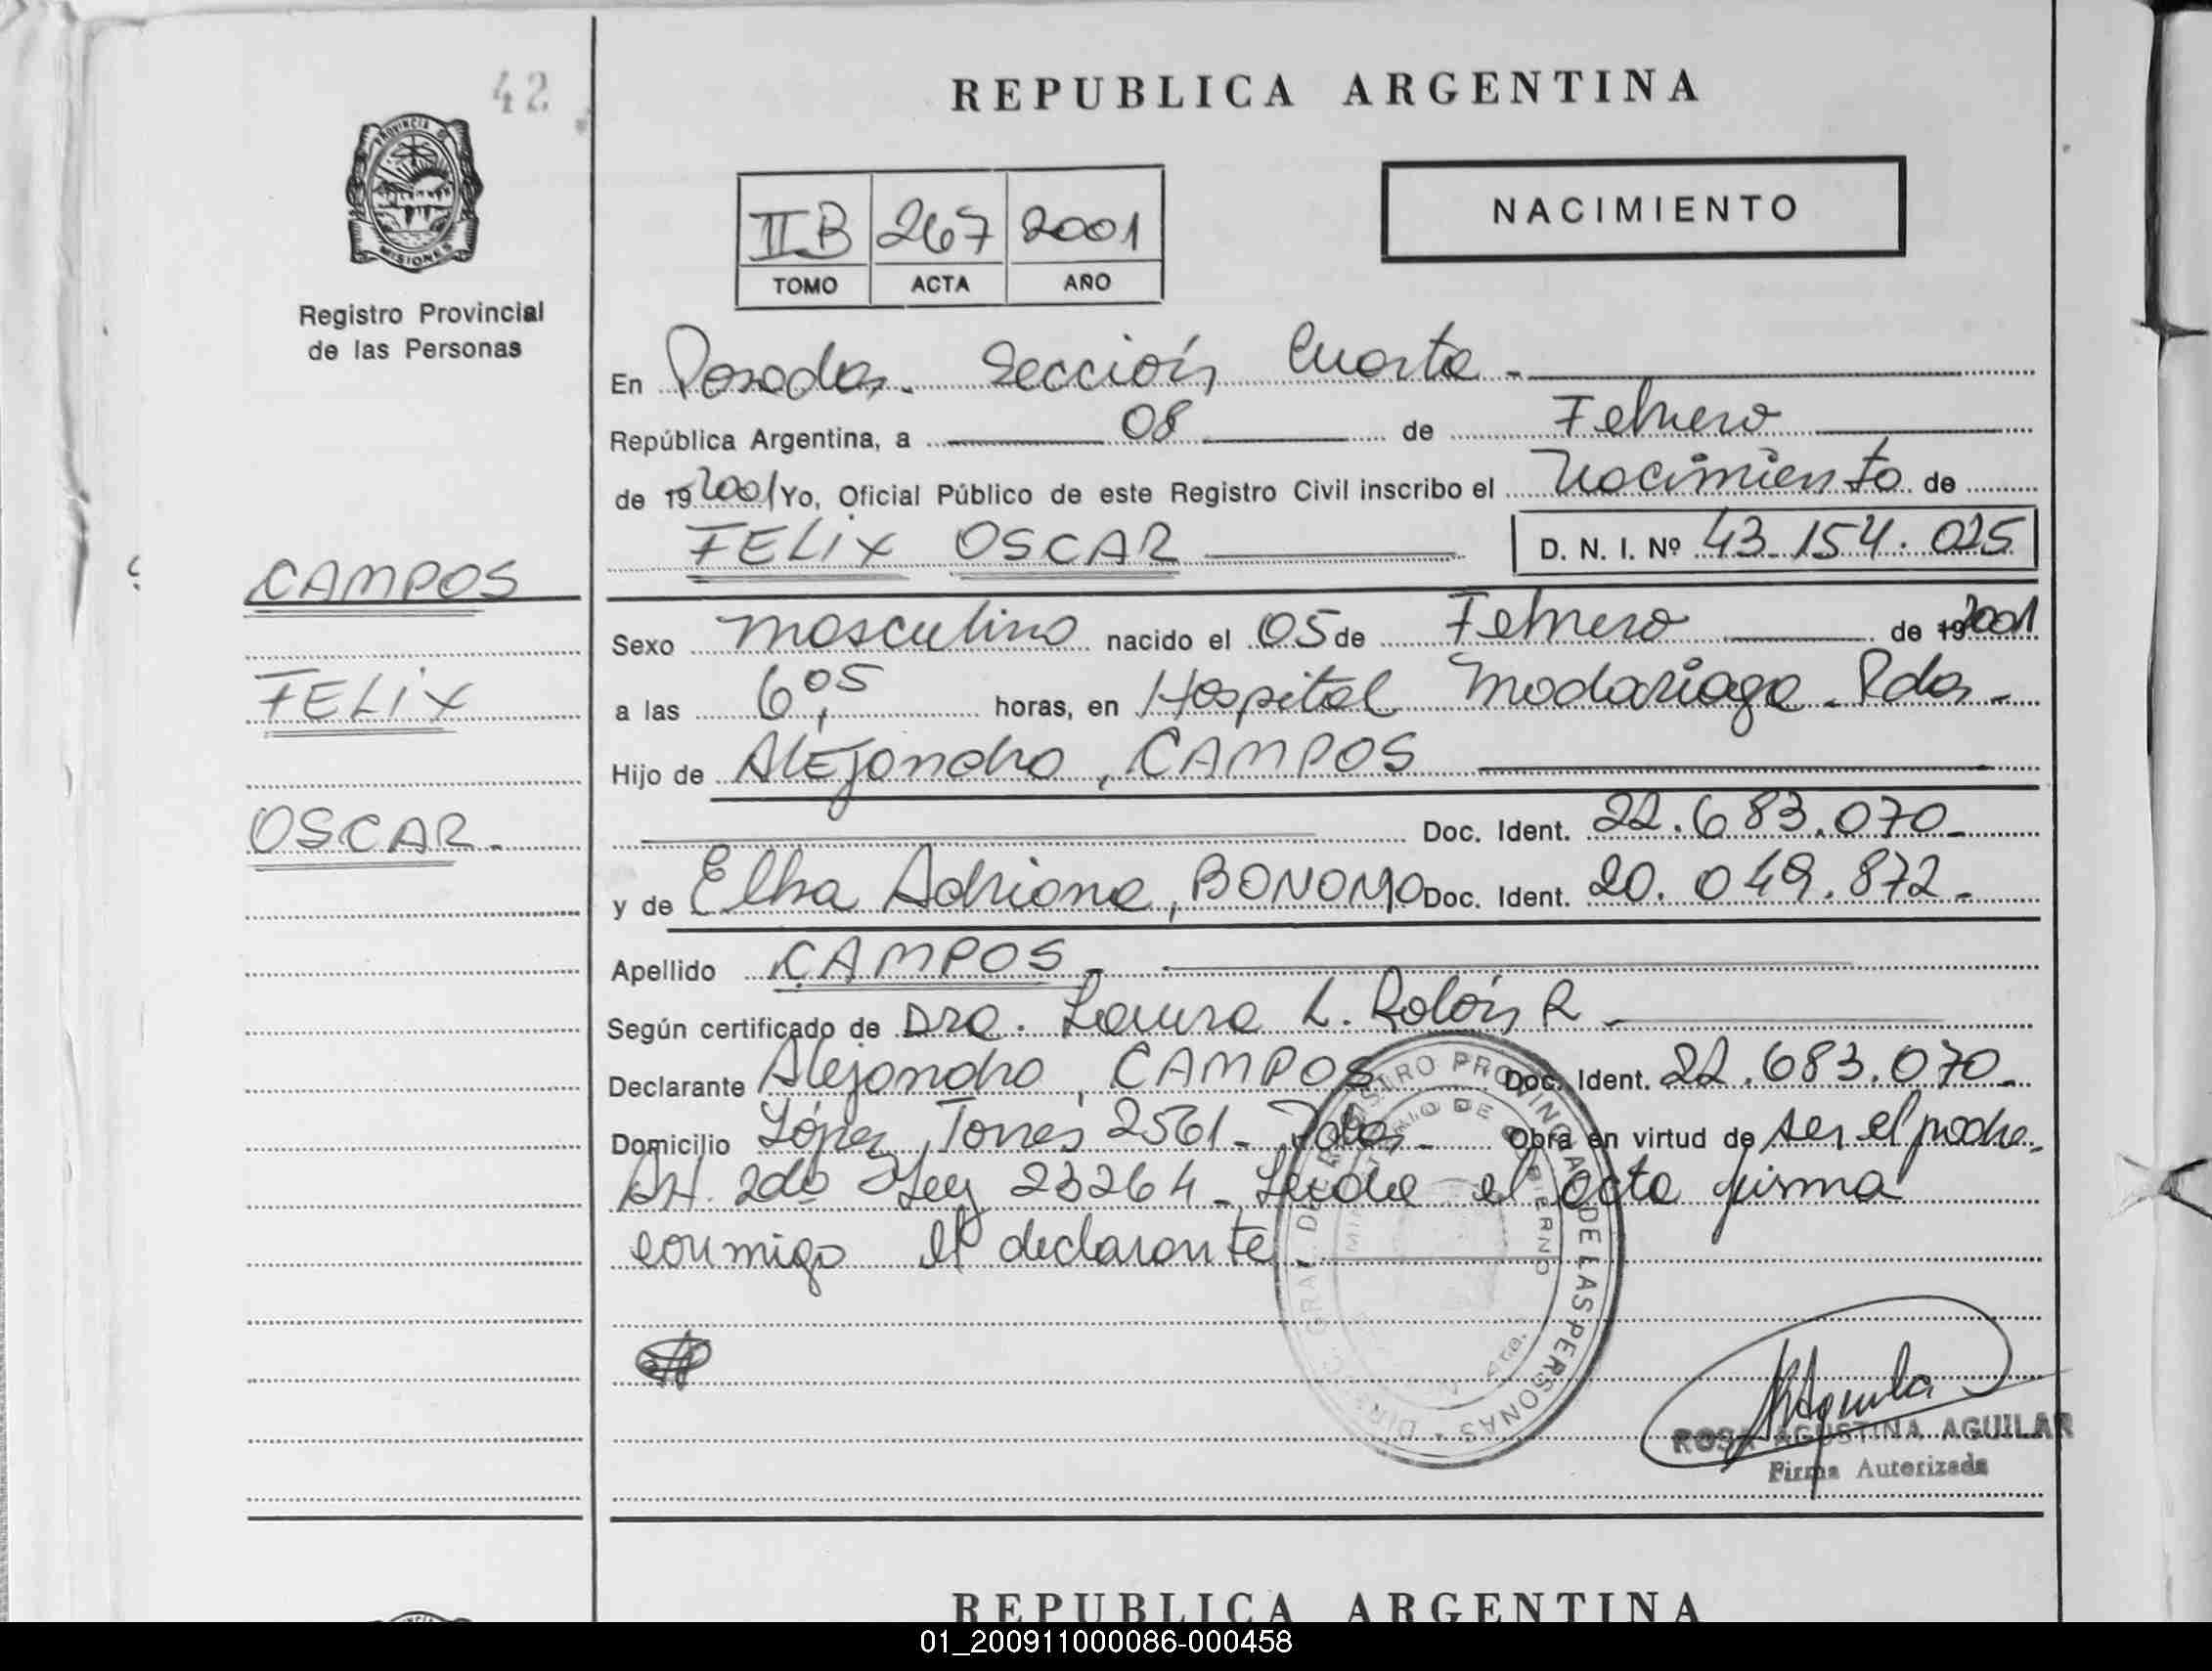 42
REPUBLICA ARGENTINA
PROVINCIA DE
MISIONES
Registro Provincial
de las Personas
IIB 267 2001
TOMO ACTA AÑO
NACIMIENTO
En Posadas. Sección Cuarta -
República Argentina, a 08 de Febrero
de 19 2001 Yo, Oficial Público de este Registro Civil inscribo el Nacimiento de
FELIX OSCAR D. N. I. Nº 43.154.025
CAMPOS
FELIX
OSCAR.
Sexo masculino nacido el 05 de Febrero de 19 2001
a las 6,05 horas, en Hospital Madariaga. Pdas -
Hijo de Alejandro, CAMPOS
Doc. Ident. 22.683.070-
y de Elba Adriana, BONOMO Doc. Ident. 20.049.872-
Apellido CAMPOS -
Según certificado de Dra. Laura L. Rolón R -
Declarante Alejandro, CAMPOS Doc. Ident. 22.683.070-
Domicilio López Torres 2561- Pdas- Obra en virtud de ser el padre.
Art. 2do Ley 23264- Leída el acta firma
conmigo el declarante
REGISTRO PROVINCIAL DE LAS PERSONAS
MINISTERIO DE GOBIERNO
ROSA AGUSTINA AGUILAR
Firma Autorizada
REPUBLICA ARGENTINA
01_200911000086-000458